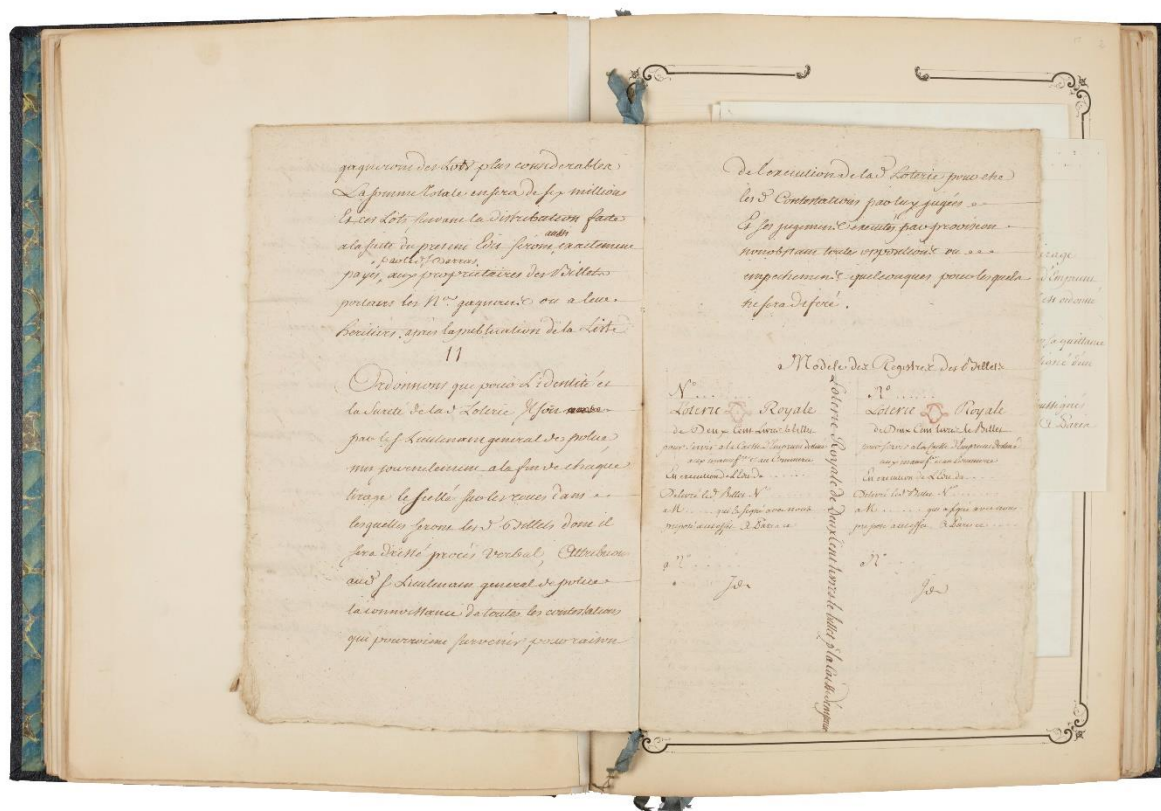 gagneront des Lots plus considerables
La somme totale en sera de six million
Et ces Lots suivant la distribution faite
a la suite du present Edit seront aussi exactement
payés, aux proprietaires des Billets
porteurs les Nos gagnants ou a leurs
heritiers, après la publication de la Liste
11
Ordonnons que pour L'identité et
la sureté de lad Loterie Il soit
par le s. Lieutenant general de police,
mis journelement a la fin de chaque
tirage le scellé sur les roues dans
lesquelles seront les d. Billets dont il
sera dressé procès verbal, Attribuons
aud s. Lieutenant general de police
la connoissance de toutes les contestations
qui pourroient survenir pour raison
de l'execution de lad Loterie pour etre
les d. Contestations par luy jugées
Et ses jugemens executés par provision
nonobstant toutes oppositions ou
empechemens quelconques pour lesquels
ne sera diferé.
Modele des Registres des Billets
No
Loterie Royale
de Deux Cent Livres le billet
En execution de L'Edit du
Delivré led Billet No
a M
a Paris ce
No
Loterie Royale de Deux Cent livres le billet pr la Caisse d'emprunt
No
Loterie Royale
de Deux Cent livres le Billet
En execution de L'Edit du
Delivré led Billet No
a M
a Paris ce
No
tirage
d'Emprunt
est ordonné
sa quittance
a Paris